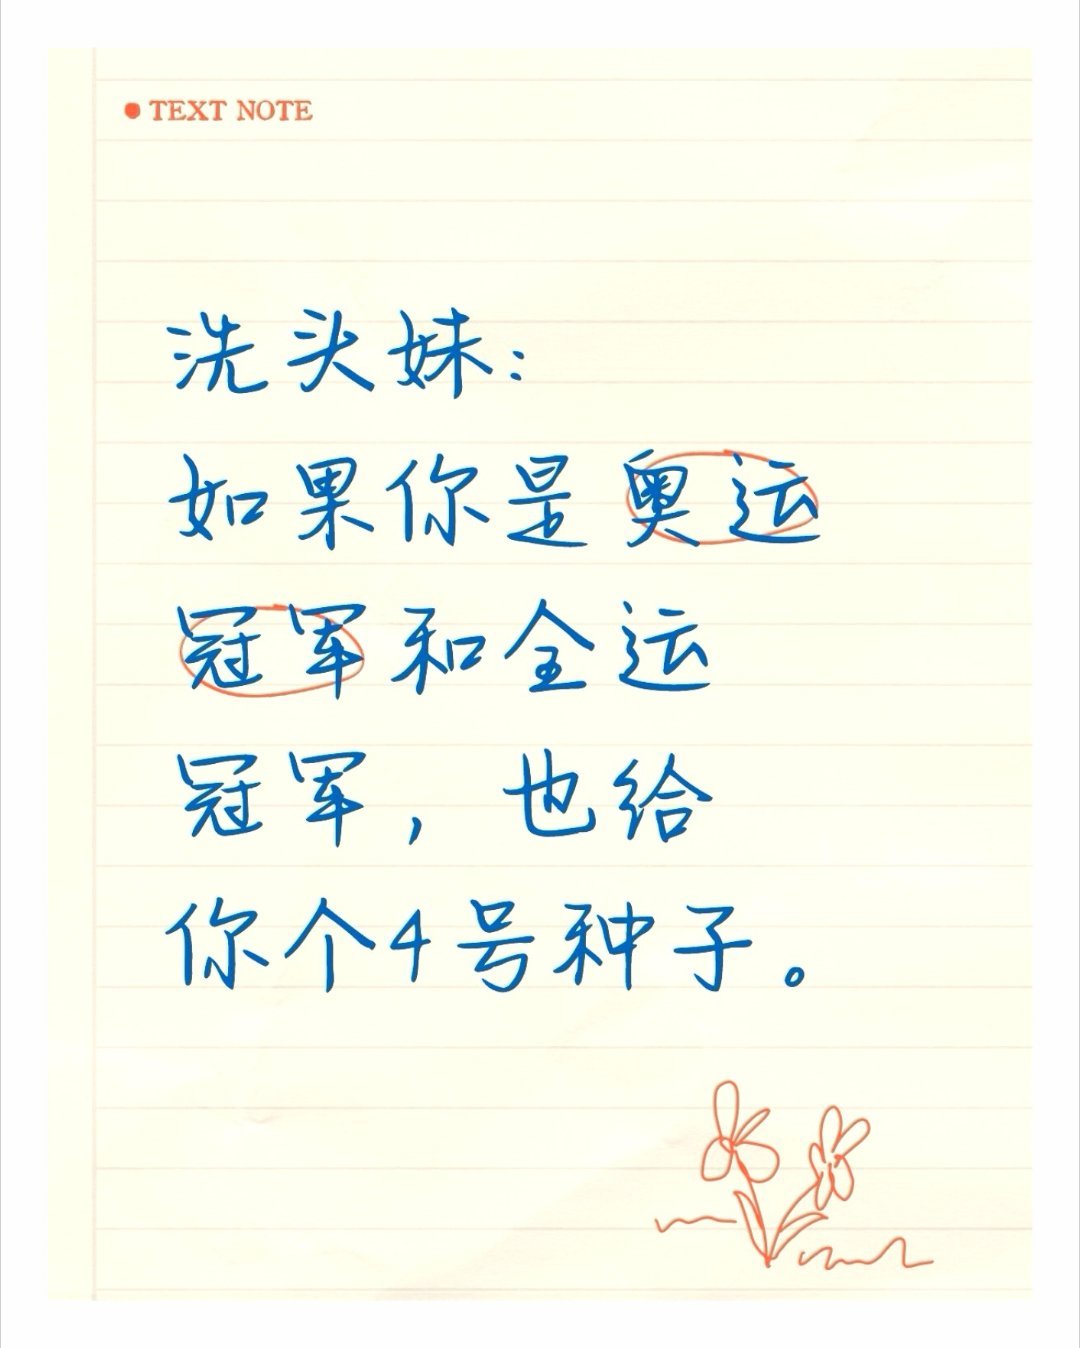 TEXT NOTE
洗头妹：
如果你是奥运
冠军和全运
冠军，也给
你个4号种子。